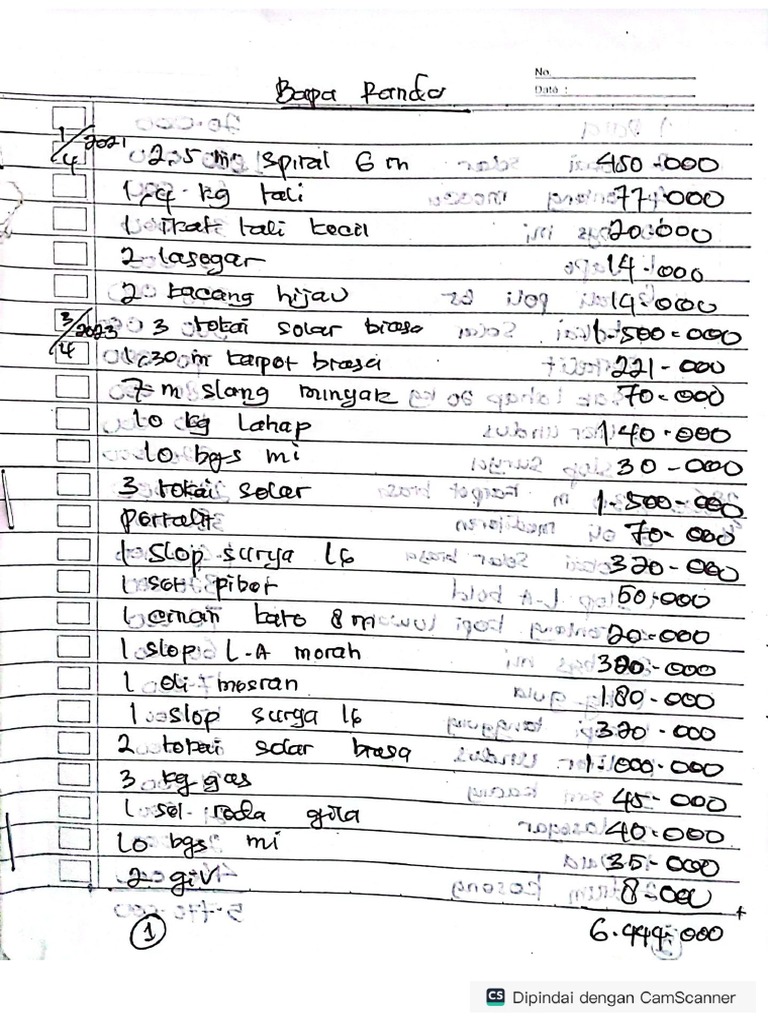 No.
Date :
Bapa Randa
1/4 2021 2,5 m spiral 6 m 450.000
1,4 kg tali 77.000
1 ikat tali kecil 20.000
2 lasegar 14.000
2 kacang hijau 14.000
3/4 2023 3 tokai solar brasa 1.500.000
1,30 m karpot brasa 221-000
7 m slang minyak 70.000
10 kg Lahap 140.000
10 bgs mi 30-000
3 tokai solar 1.500-000
pertalit 70-000
1 slop surya 16 320-000
1 set pibot 50.000
8 m 20.000
1 slop L-A merah 320.000
1 oli mesran 180-000
1 slop surya 16 320-000
2 tokai solar brasa 1.000.000
3 kg gas 45-000
1 sol roda gila 40.000
10 bgs mi 35-000
2 givi 8-000
+
1 6.444.000
CS Dipindai dengan CamScanner